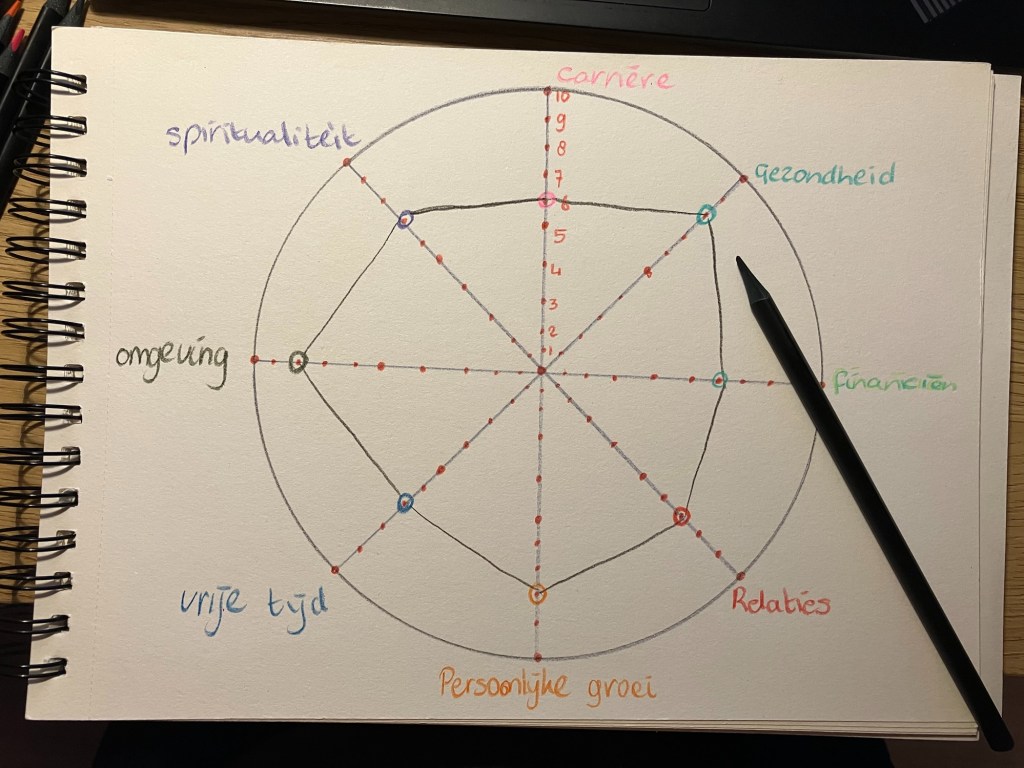 Carrière
10
9
8
7
6
5
4
3
2
1
spiritualiteit
Gezondheid
omgeving
financiën
vrije tijd
Relaties
Persoonlijke groei